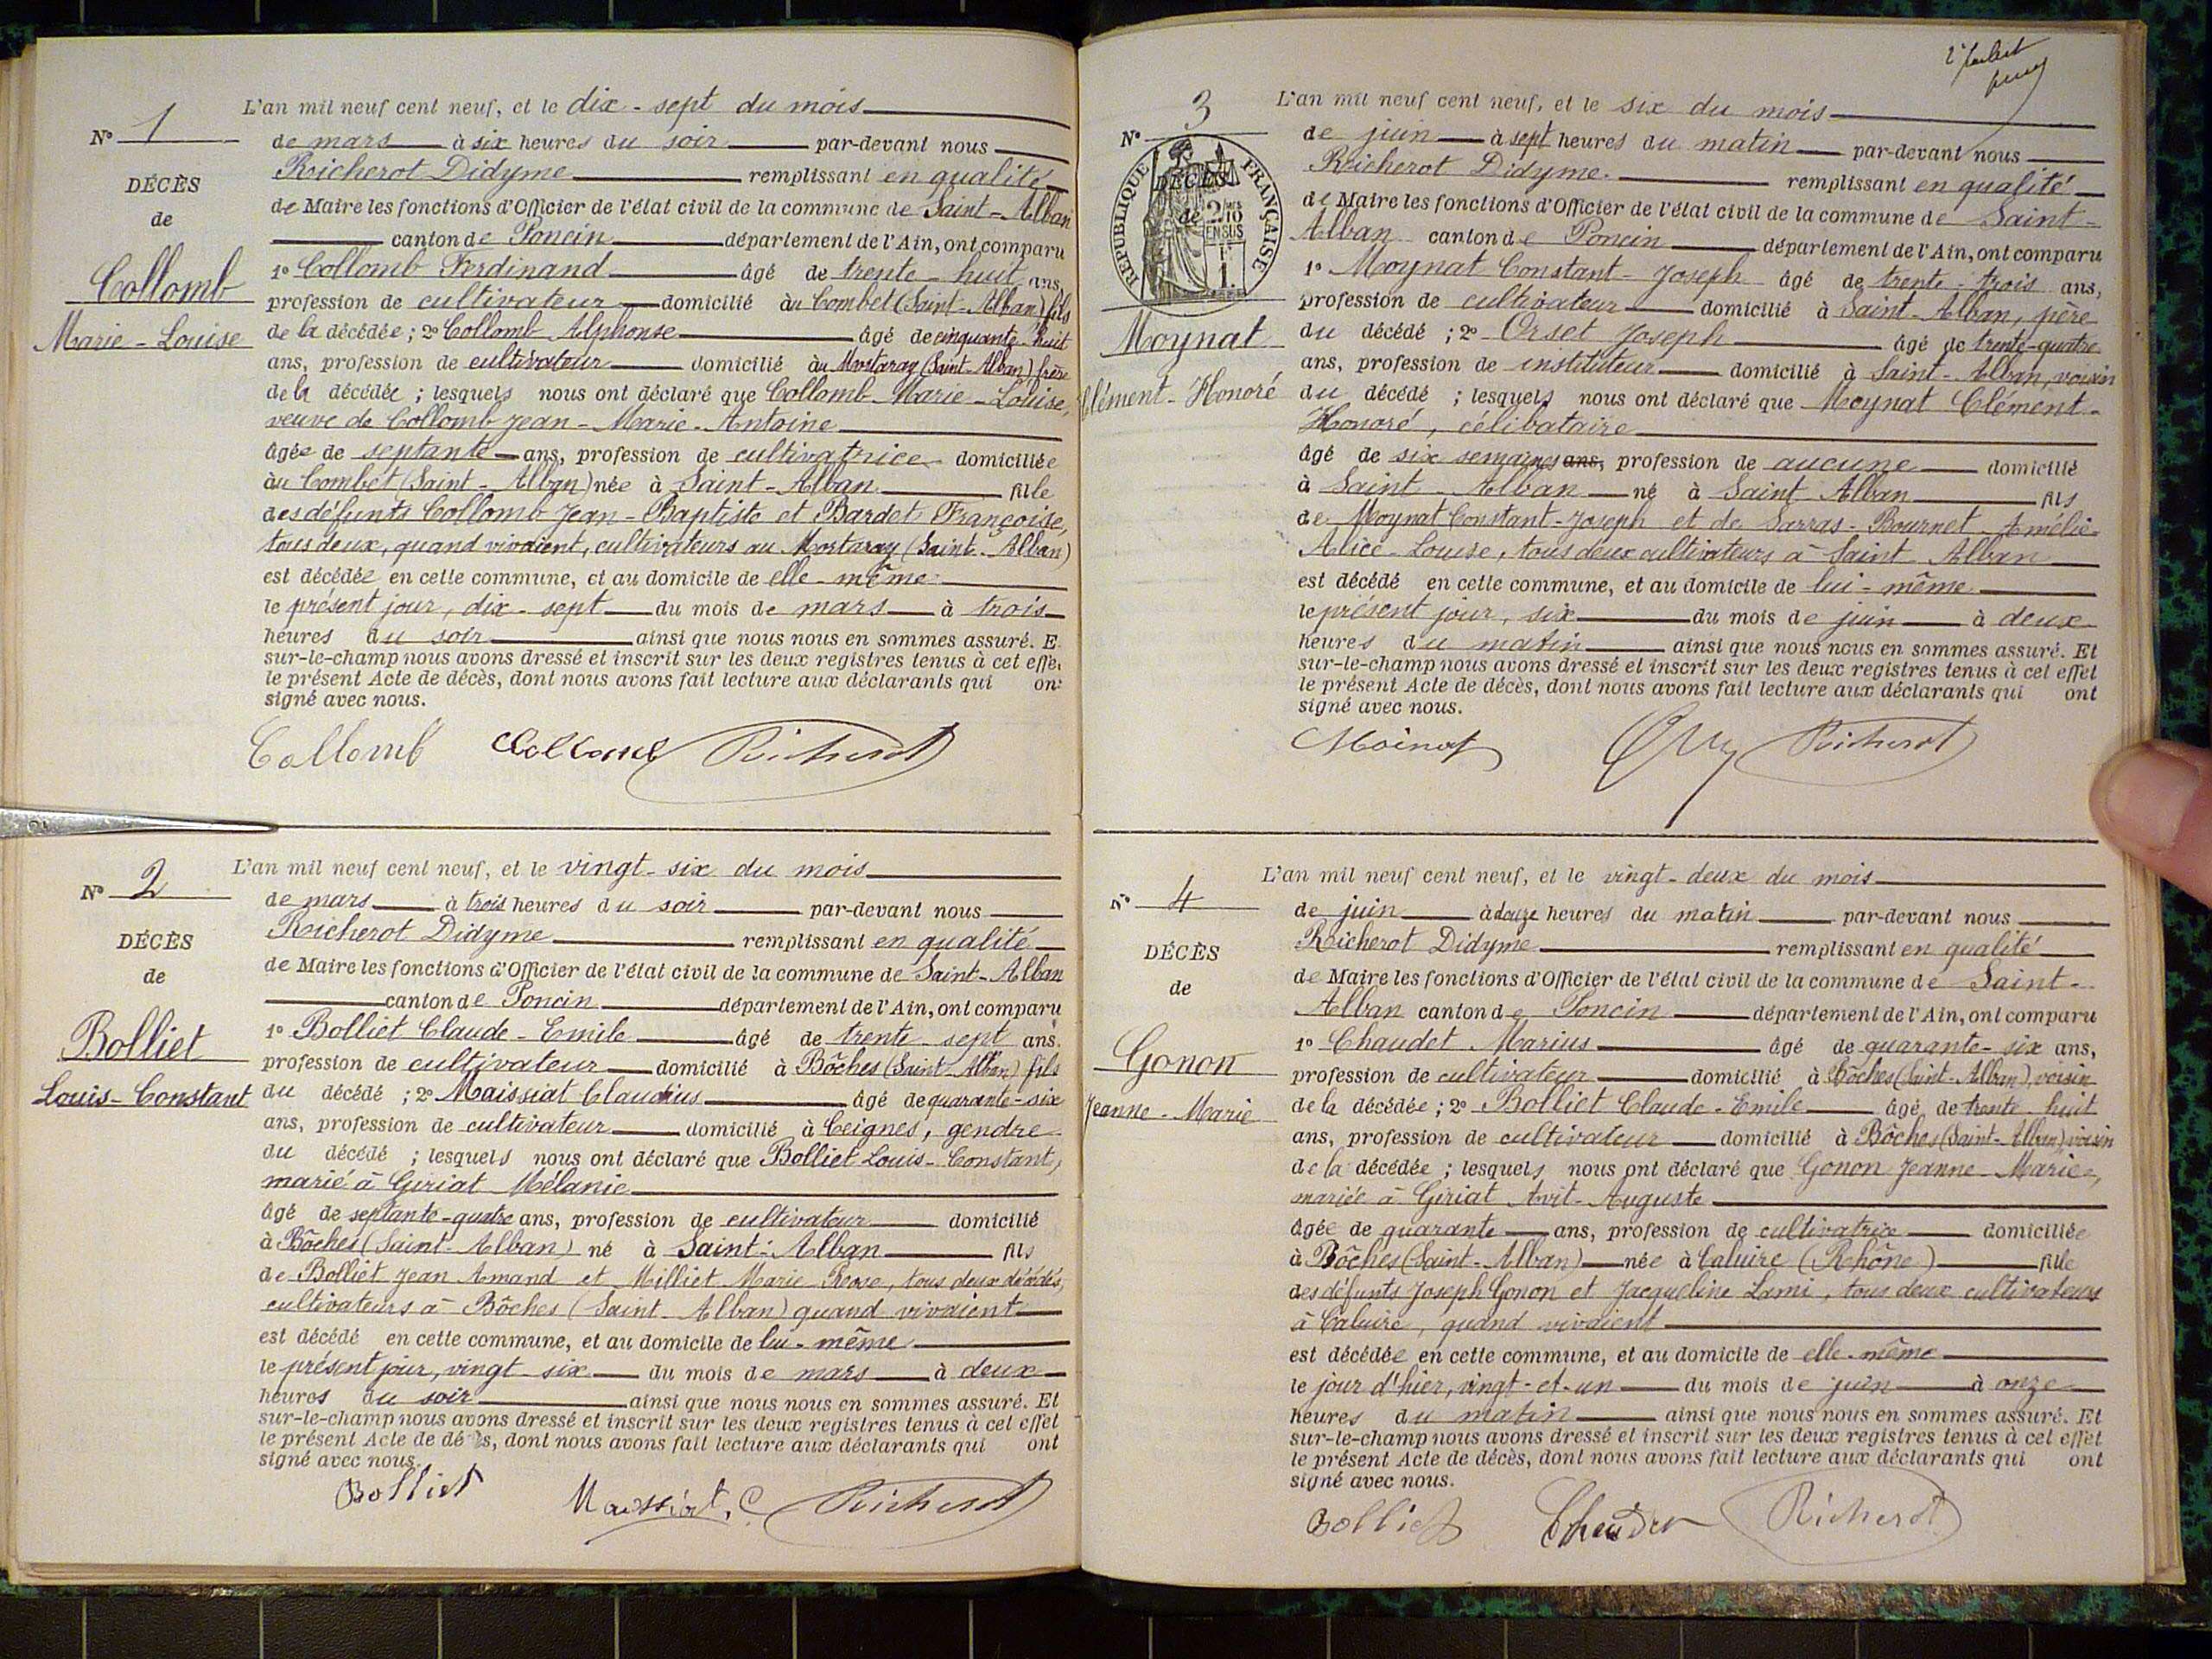 L'an mil neuf cent neuf, et le dix-sept du mois
N° 1
de mars à six heures du soir par-devant nous
Richerot Didyme remplissant en qualité
DÉCÈS
de Maire les fonctions d'Officier de l'état civil de la commune de Saint-Alban
de
canton de Poncin département de l'Ain, ont comparu
1° Collomb Ferdinand âgé de trente-huit ans,
Collomb
profession de cultivateur domicilié au Combet (Saint-Alban) fils
Marie-Louise
de la décédée ; 2° Collomb Alphonse âgé de cinquante-huit
ans, profession de cultivateur domicilié au Mortaray (Saint-Alban) frère
de la décédée ; lesquels nous ont déclaré que Collomb Marie-Louise,
veuve de Collomb Jean-Marie-Antoine
âgée de septante ans, profession de cultivatrice domiciliée
au Combet (Saint-Alban) née à Saint-Alban fille
des défunts Collomb Jean-Baptiste et Bardet Françoise,
tous deux, quand vivaient, cultivateurs au Mortaray (Saint-Alban)
est décédée en cette commune, et au domicile de elle-même
le présent jour, dix-sept du mois de mars à trois
heures du soir ainsi que nous nous en sommes assuré. E
sur-le-champ nous avons dressé et inscrit sur les deux registres tenus à cet effe
le présent Acte de décès, dont nous avons fait lecture aux déclarants qui on
signé avec nous.
Collomb Collomb Richerot
L'an mil neuf cent neuf, et le vingt-six du mois
N° 2
de mars à trois heures du soir par-devant nous
Richerot Didyme remplissant en qualité
DÉCÈS
de Maire les fonctions d'Officier de l'état civil de la commune de Saint-Alban
de
canton de Poncin département de l'Ain, ont comparu
1° Bolliet Claude-Emile âgé de trente-sept ans,
Bolliet
profession de cultivateur domicilié à Bôches (Saint-Alban) fils
Louis-Constant
du décédé ; 2° Maissiat Claudius âgé de quarante-six
ans, profession de cultivateur domicilié à Ceignes, gendre
du décédé ; lesquels nous ont déclaré que Bolliet Louis-Constant,
marié à Giriat Mélanie
âgé de septante-quatre ans, profession de cultivateur domicilié
à Bôches (Saint-Alban) né à Saint-Alban fils
de Bolliet Jean Amand et Milliet Marie Rose, tous deux décédés,
cultivateurs à Bôches (Saint-Alban) quand vivaient
est décédé en cette commune, et au domicile de lui-même
le présent jour, vingt-six du mois de mars à deux
heures du soir ainsi que nous nous en sommes assuré. Et
sur-le-champ nous avons dressé et inscrit sur les deux registres tenus à cet effet
le présent Acte de décès, dont nous avons fait lecture aux déclarants qui ont
signé avec nous.
Bolliet Maissiat, C Richerot
L'an mil neuf cent neuf, et le six du mois
N° 3
de juin à sept heures du matin par-devant nous
Richerot Didyme. remplissant en qualité
RÉPUBLIQUE FRANÇAISE
DÉCÈS
de
2/10 EN SUS
de Maire les fonctions d'Officier de l'état civil de la commune de Saint-
Alban canton de Poncin département de l'Ain, ont comparu
1° Moynat Constant-Joseph âgé de trente-trois ans,
profession de cultivateur domicilié à Saint-Alban, père
Moynat
du décédé ; 2° Orset Joseph âgé de trente-quatre
ans, profession de instituteur domicilié à Saint-Alban, voisin
Clément-Honoré
du décédé ; lesquels nous ont déclaré que Moynat Clément-
Honoré, célibataire
âgé de six semaines ans, profession de aucune domicilié
à Saint-Alban né à Saint-Alban fils
de Moynat Constant-Joseph et de Sarras-Bournet Amélie-
Alice-Louise, tous deux cultivateurs à Saint-Alban
est décédé en cette commune, et au domicile de lui-même
le présent jour, six du mois de juin à deux
heures du matin ainsi que nous nous en sommes assuré. Et
sur-le-champ nous avons dressé et inscrit sur les deux registres tenus à cet effet
le présent Acte de décès, dont nous avons fait lecture aux déclarants qui ont
signé avec nous.
Moinat Richerot
L'an mil neuf cent neuf, et le vingt-deux du mois
N° 4
de juin à douze heures du matin par-devant nous
Richerot Didyme remplissant en qualité
DÉCÈS
de Maire les fonctions d'Officier de l'état civil de la commune de Saint-
de
Alban canton de Poncin département de l'Ain, ont comparu
1° Chaudet Marius âgé de quarante-six ans,
Gonon
profession de cultivateur domicilié à Bôches (Saint-Alban), voisin
Jeanne-Marie
de la décédée ; 2° Bolliet Claude-Emile âgé de trente-huit
ans, profession de cultivateur domicilié à Bôches (Saint-Alban) voisin
de la décédée ; lesquels nous ont déclaré que Gonon Jeanne-Marie,
mariée à Giriat Avit-Auguste
âgée de quarante ans, profession de cultivatrice domiciliée
à Bôches (Saint-Alban) née à Caluire (Rhône) fille
des défunts Joseph Gonon et Jacqueline Lami, tous deux cultivateurs
à Caluire, quand vivaient
est décédée en cette commune, et au domicile de elle-même
le jour d'hier, vingt-et-un du mois de juin à onze
heures du matin ainsi que nous nous en sommes assuré. Et
sur-le-champ nous avons dressé et inscrit sur les deux registres tenus à cet effet
le présent Acte de décès, dont nous avons fait lecture aux déclarants qui ont
signé avec nous.
Bolliet Chaudet Richerot